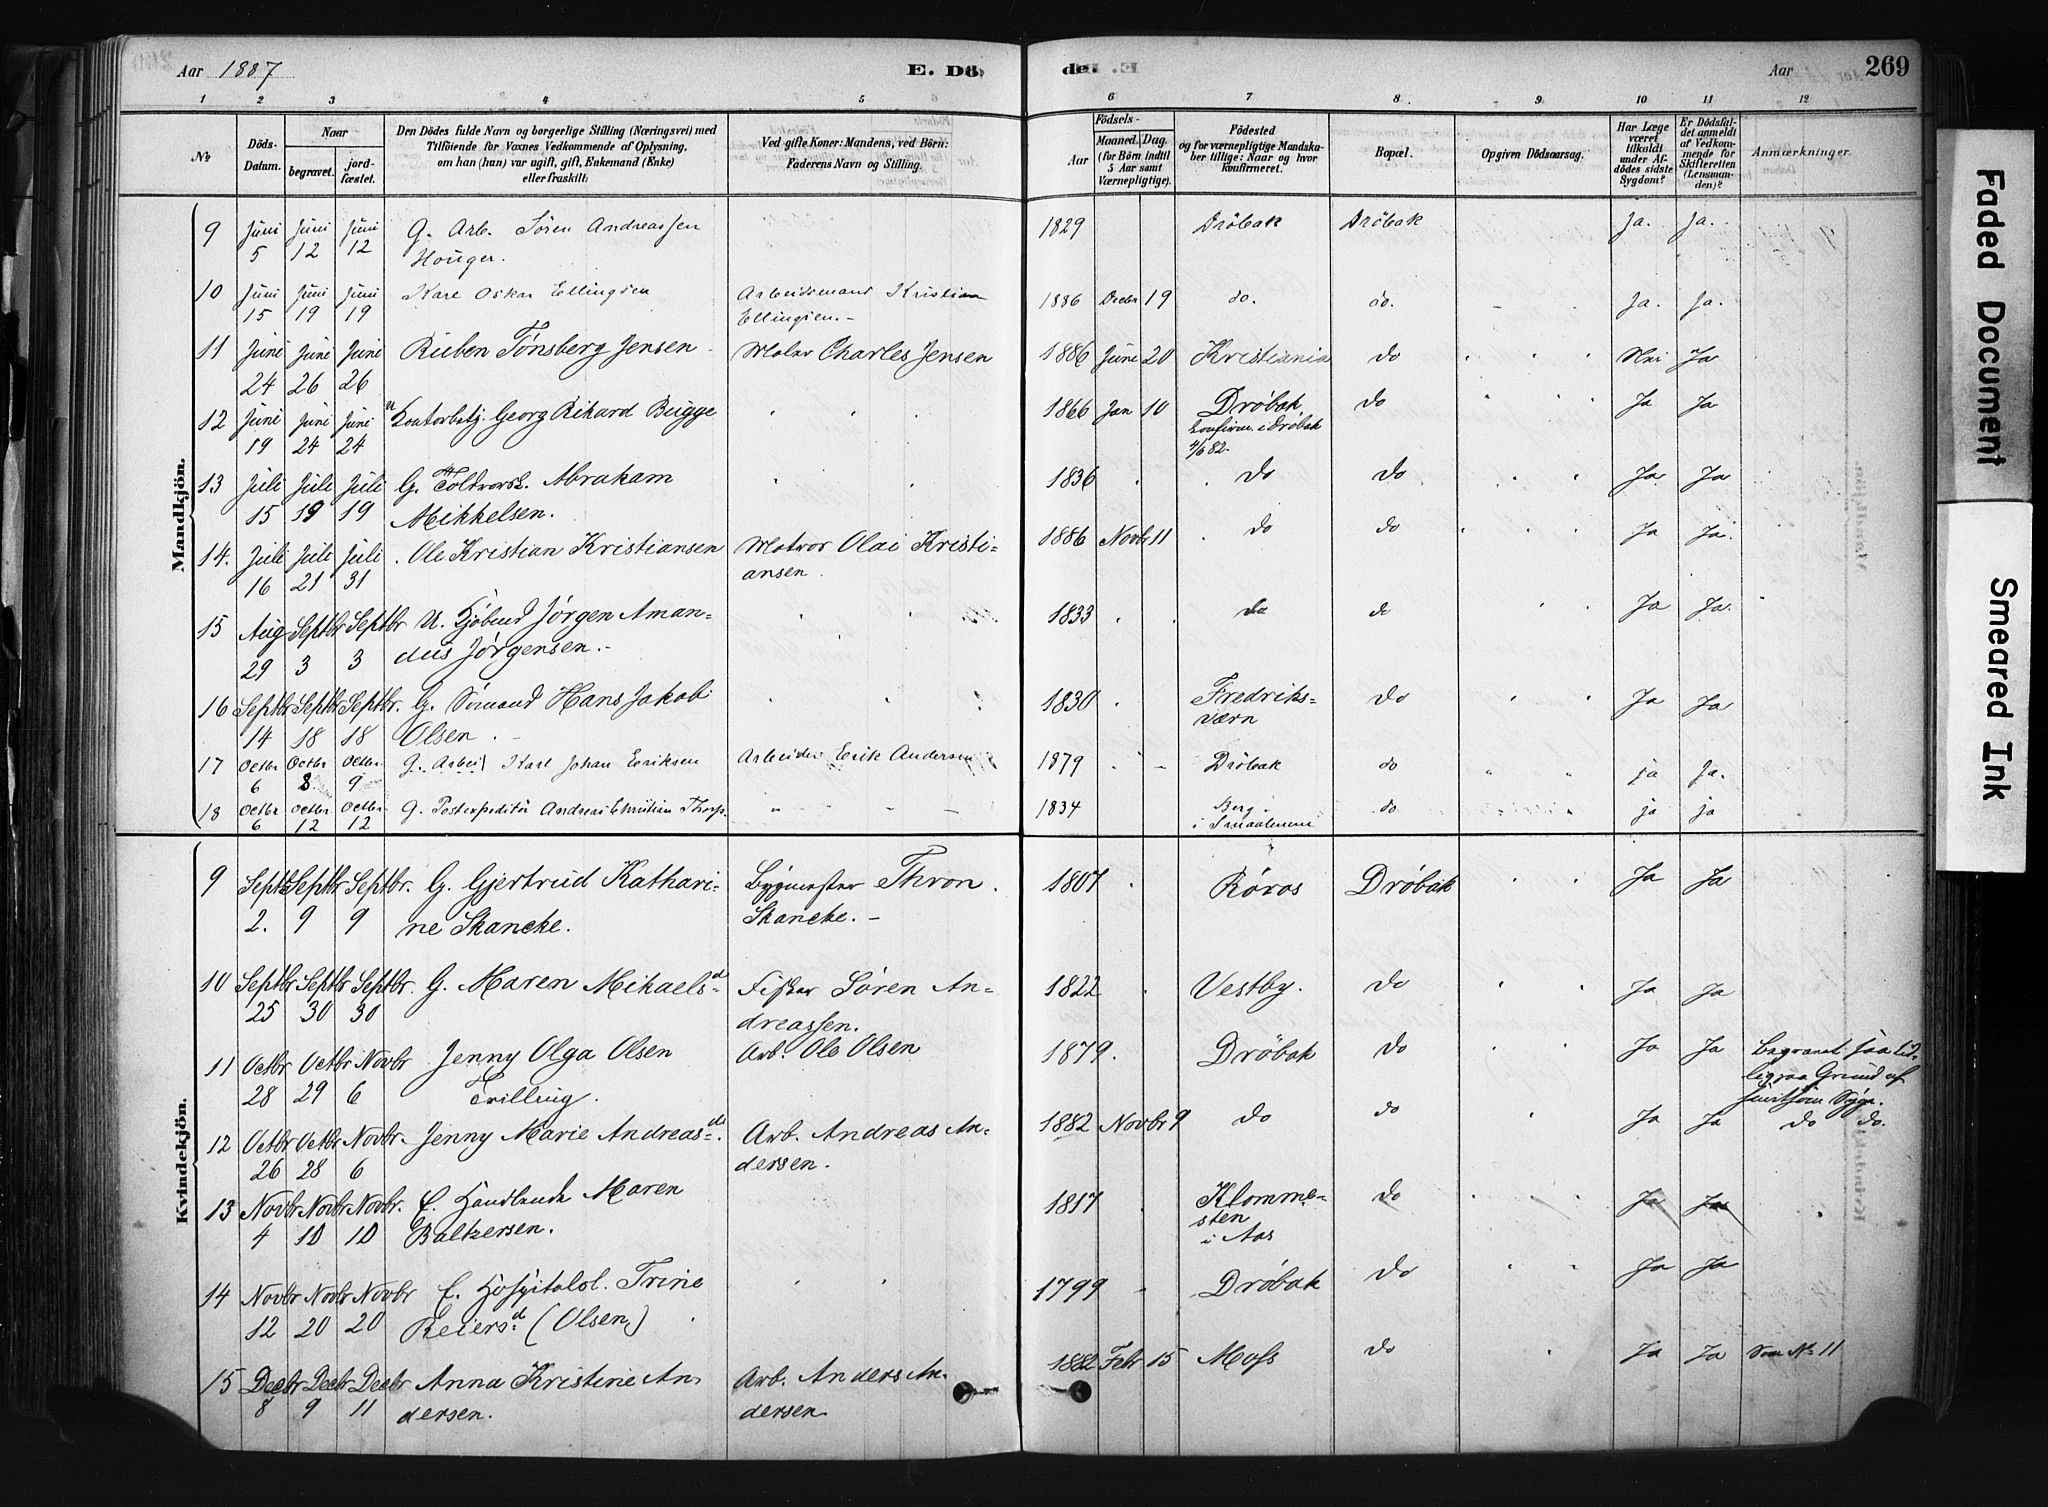 Aar 1887
E. Dö
de.
Aar
269
1 2 3 4 5 6 7 8 9 10 11 12
No
Döds-Datum.
Naar
begravet.
jord-fæstet.
Den Dödes fulde Navn og borgerlige Stilling (Næringsvei) med
Tilföiende for Voxnes Vedkommende af Oplysning,
om han (han) var ugift, gift, Enkemand (Enke)
eller fraskilt.
Ved gifte Koner: Mandens, ved Börn:
Faderens Navn og Stilling.
Aar
Födsels-
Maaned. Dag.
(for Börn indtil
5 Aar samt
Værnepligtige).
Födested
og for værnepligtige Mandska-
ber tillige: Naar og hvor
konfirmeret.
Bopæl.
Opgiven Dödsaarsag.
Har Læge
været
tilkaldt
under Af-
dödes sidste
Sygdom?
Er Dödsfal-
det anmeldt
af Vedkom-
mende for
Skifteretten
(Lensman-
den)?
Anmærkninger.
Mandkjön.
9 Juni 5 Juni 12 Juni 12 G. Arb. Sören Andreassen 1829 Dröbak Dröbak Ja. Ja.
Houger.
10 Juni 15 Juni 19 Juni 19 Karl Oskar Ellingsen Arbeidsmand Kristian 1886 Decbr 19 do. do. Ja. Ja.
Ellingsen.
11 Juni 24 Juni 26 Juni 26 Ruben Tønsberg Jensen Maler Charles Jensen 1886 Juni 20 Kristiania do Nei Ja
12 Juni 19 Juni 24 Juni 24 U Kontorbetj. Georg Rikard Bugge 1866 Jan 10 Dröbak do Ja Ja
konfirm. i Dröbak
4/6 82.
13 Juli 15 Juli 19 Juli 19 G. Toldrorsk. Abraham 1836 do do Ja Ja
Mikkelsen.
14. Juli 16 Juli 21 Juli 31 Ole Kristian Kristiansen Matros Olai Kristi- 1886 Novbr 11 do do Ja Ja.
ansen.
15 Aug 29 Septbr 3 Septbr 3 U. Kjöbmd Jörgen Aman- 1833 do do Ja Ja
dus Jörgensen.
16 Septbr 14 Septbr 18 Septbr. 18 G. Sömand Hans Jakob 1830 Fredriks- do Ja Ja
Olsen. værn
17 Octbr 6 Octbr 8 Octbr. 9 G. Arbei Karl Johan Eriksen Arbeider Erik Andersen 1879 Dröbak do ja Ja.
18 Octbr 6 Octbr 12 Octbr. 12 G. Postexpeditör Andreas Christian Thorp. 1834 Berg do ja ja
i Smaalenene
Kvindekjön.
9 Septbr 2. Septbr 9 Septbr. 9 G. Gjertrud Kathari- Bygmester Thron 1807 Röros Dröbak Ja Ja
ne Skancke. Skancke.
10 Septbr 25 Septbr 30 Septbr. 30 G. Maren Mikaelsd Fisker Sören An- 1822 Vestby. do Ja Ja
dreassen.
11 Octbr 28 Octbr 29 Novbr 6 Jenny Olga Olsen Arb. Ole Olsen 1879. Dröbak do Ja Ja Begravet saa tid-
Tvilling. ligpaa Grund af
smitsom Syge.
12 Octbr 26 Octbr 28 Novbr. 6 Jenny Marie Andreasdr. Arb. Andreas An- 1882 Novbr 9 do do Ja Ja do do.
dersen.
13 Novbr 4 Novbr 10 Novbr. 10 E. Handlende Maren 1817 Klomme- do Ja Ja
Baltzersen. sten
i Aas
14 Novbr 12 Novbr 20 Novbr 20 E. Hospitalsl. Trine 1799 Dröbak do Ja Ja
Reiersd (Olsen)
15 Decbr 8 Decbr 9 Decbr 11 Anna Kristine An- Arb. Anders An- 1882 Febr 15 Moss do Ja Ja Som No 11
dersen. dersen
Faded Document
Smeared Ink